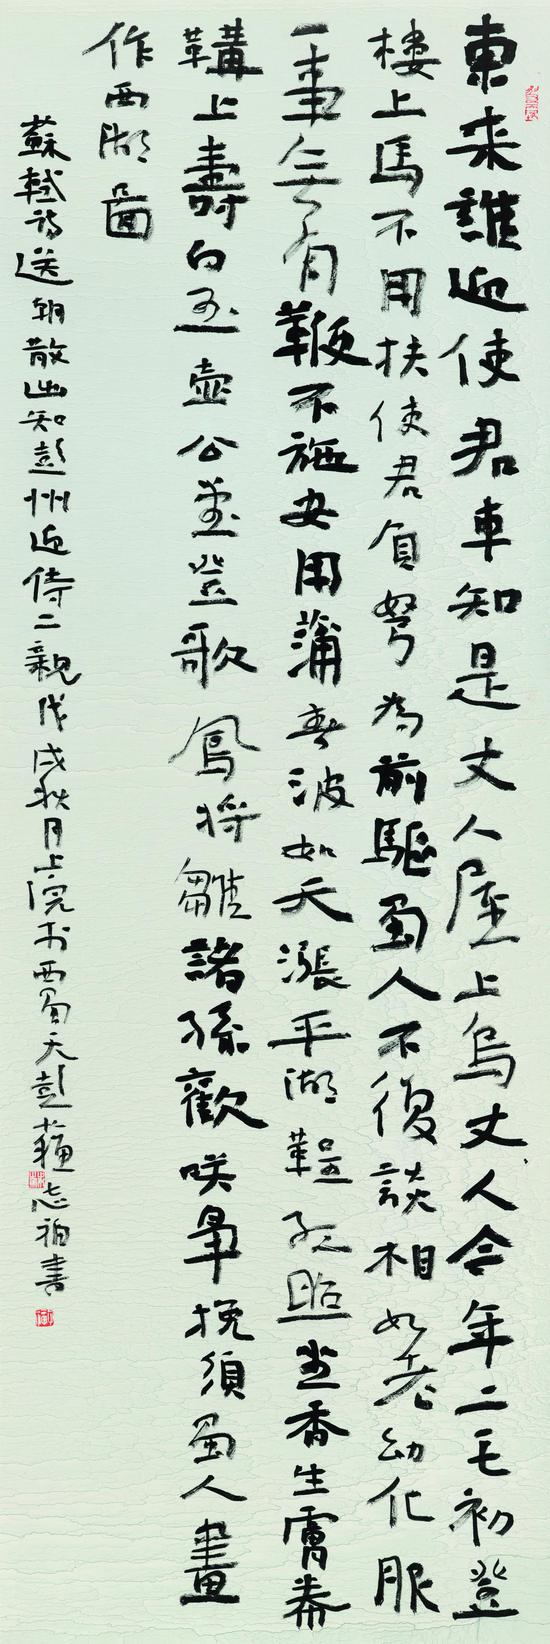 東来誰迎使君車知是丈人屋上烏丈人今年二毛初登
樓上馬不用扶使君負弩為前驅蜀人不復談相如老幼化服
一事無有鞭不施安用蒲春波如天漲平湖鞓紅照坐香生膚帣
鞲上壽白玉壺公堂登歌鳳将雛諸孫歡咲爭挽須蜀人畫
作西湖圖
蘇軾诗送朝散出知彭州迎侍二親戊戌秋月上浣於西蜀天彭蘇志祖書